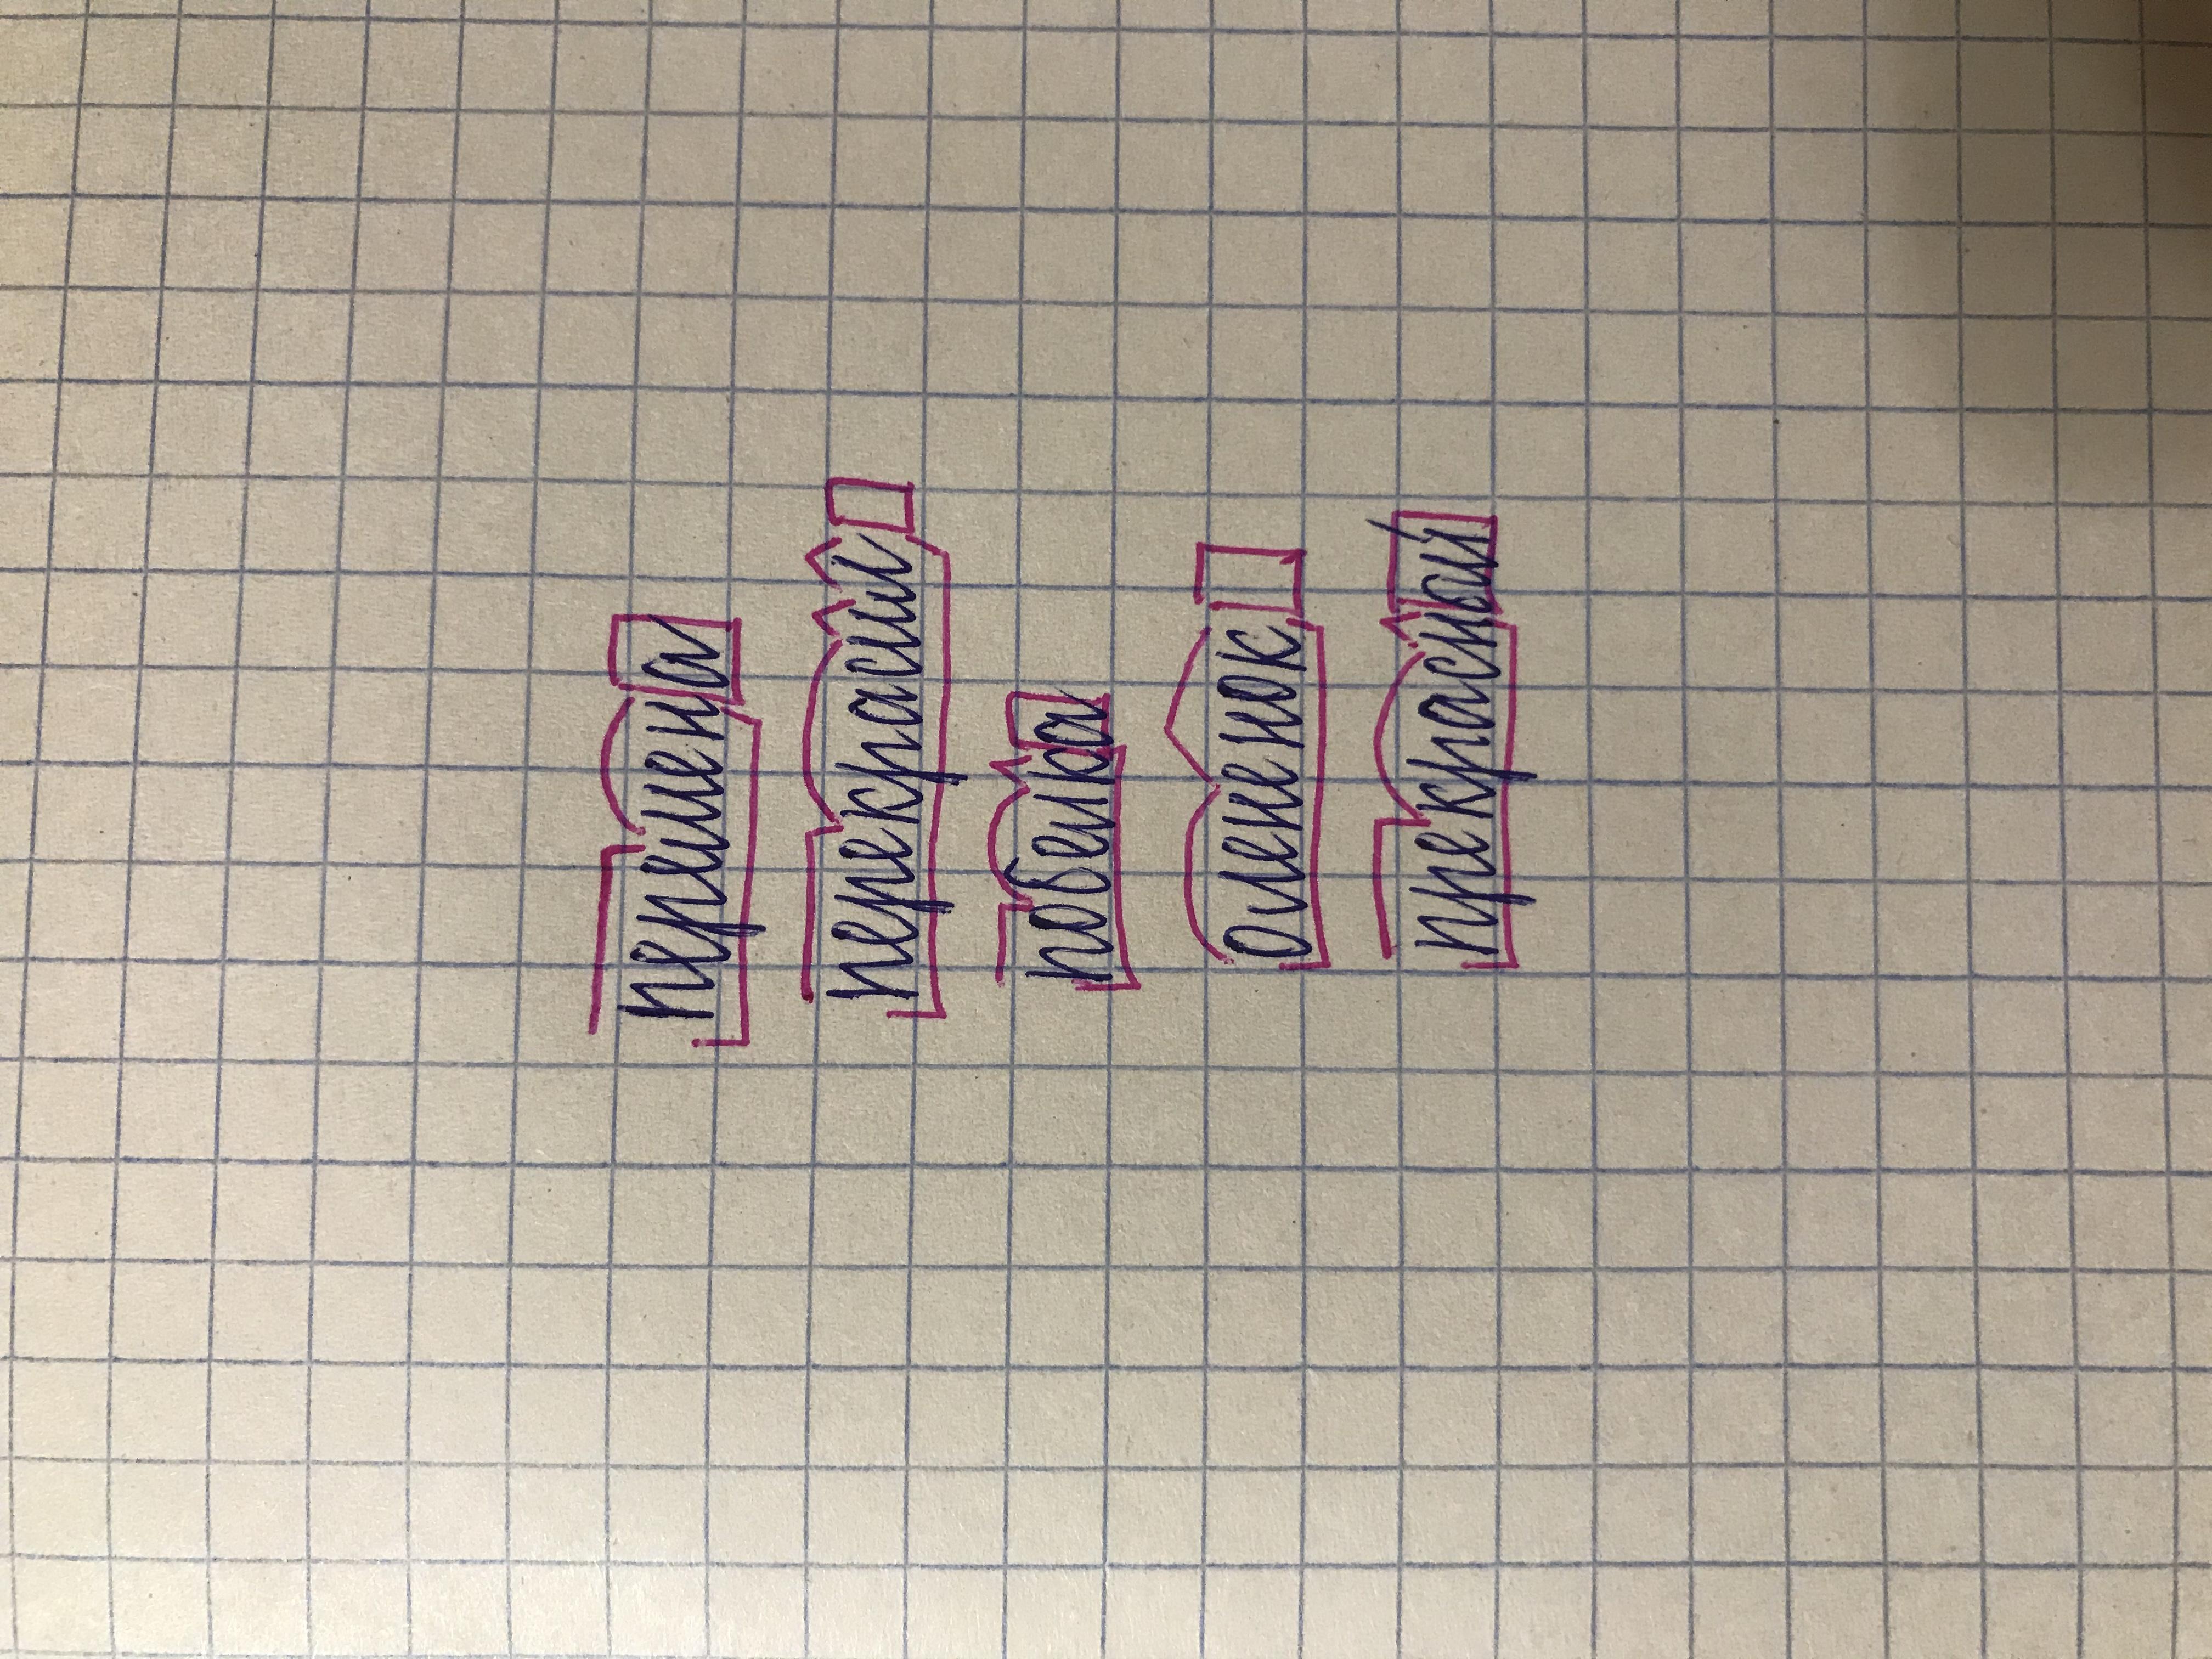 перемена
перекрасил
побелка
олененок
прекрасный